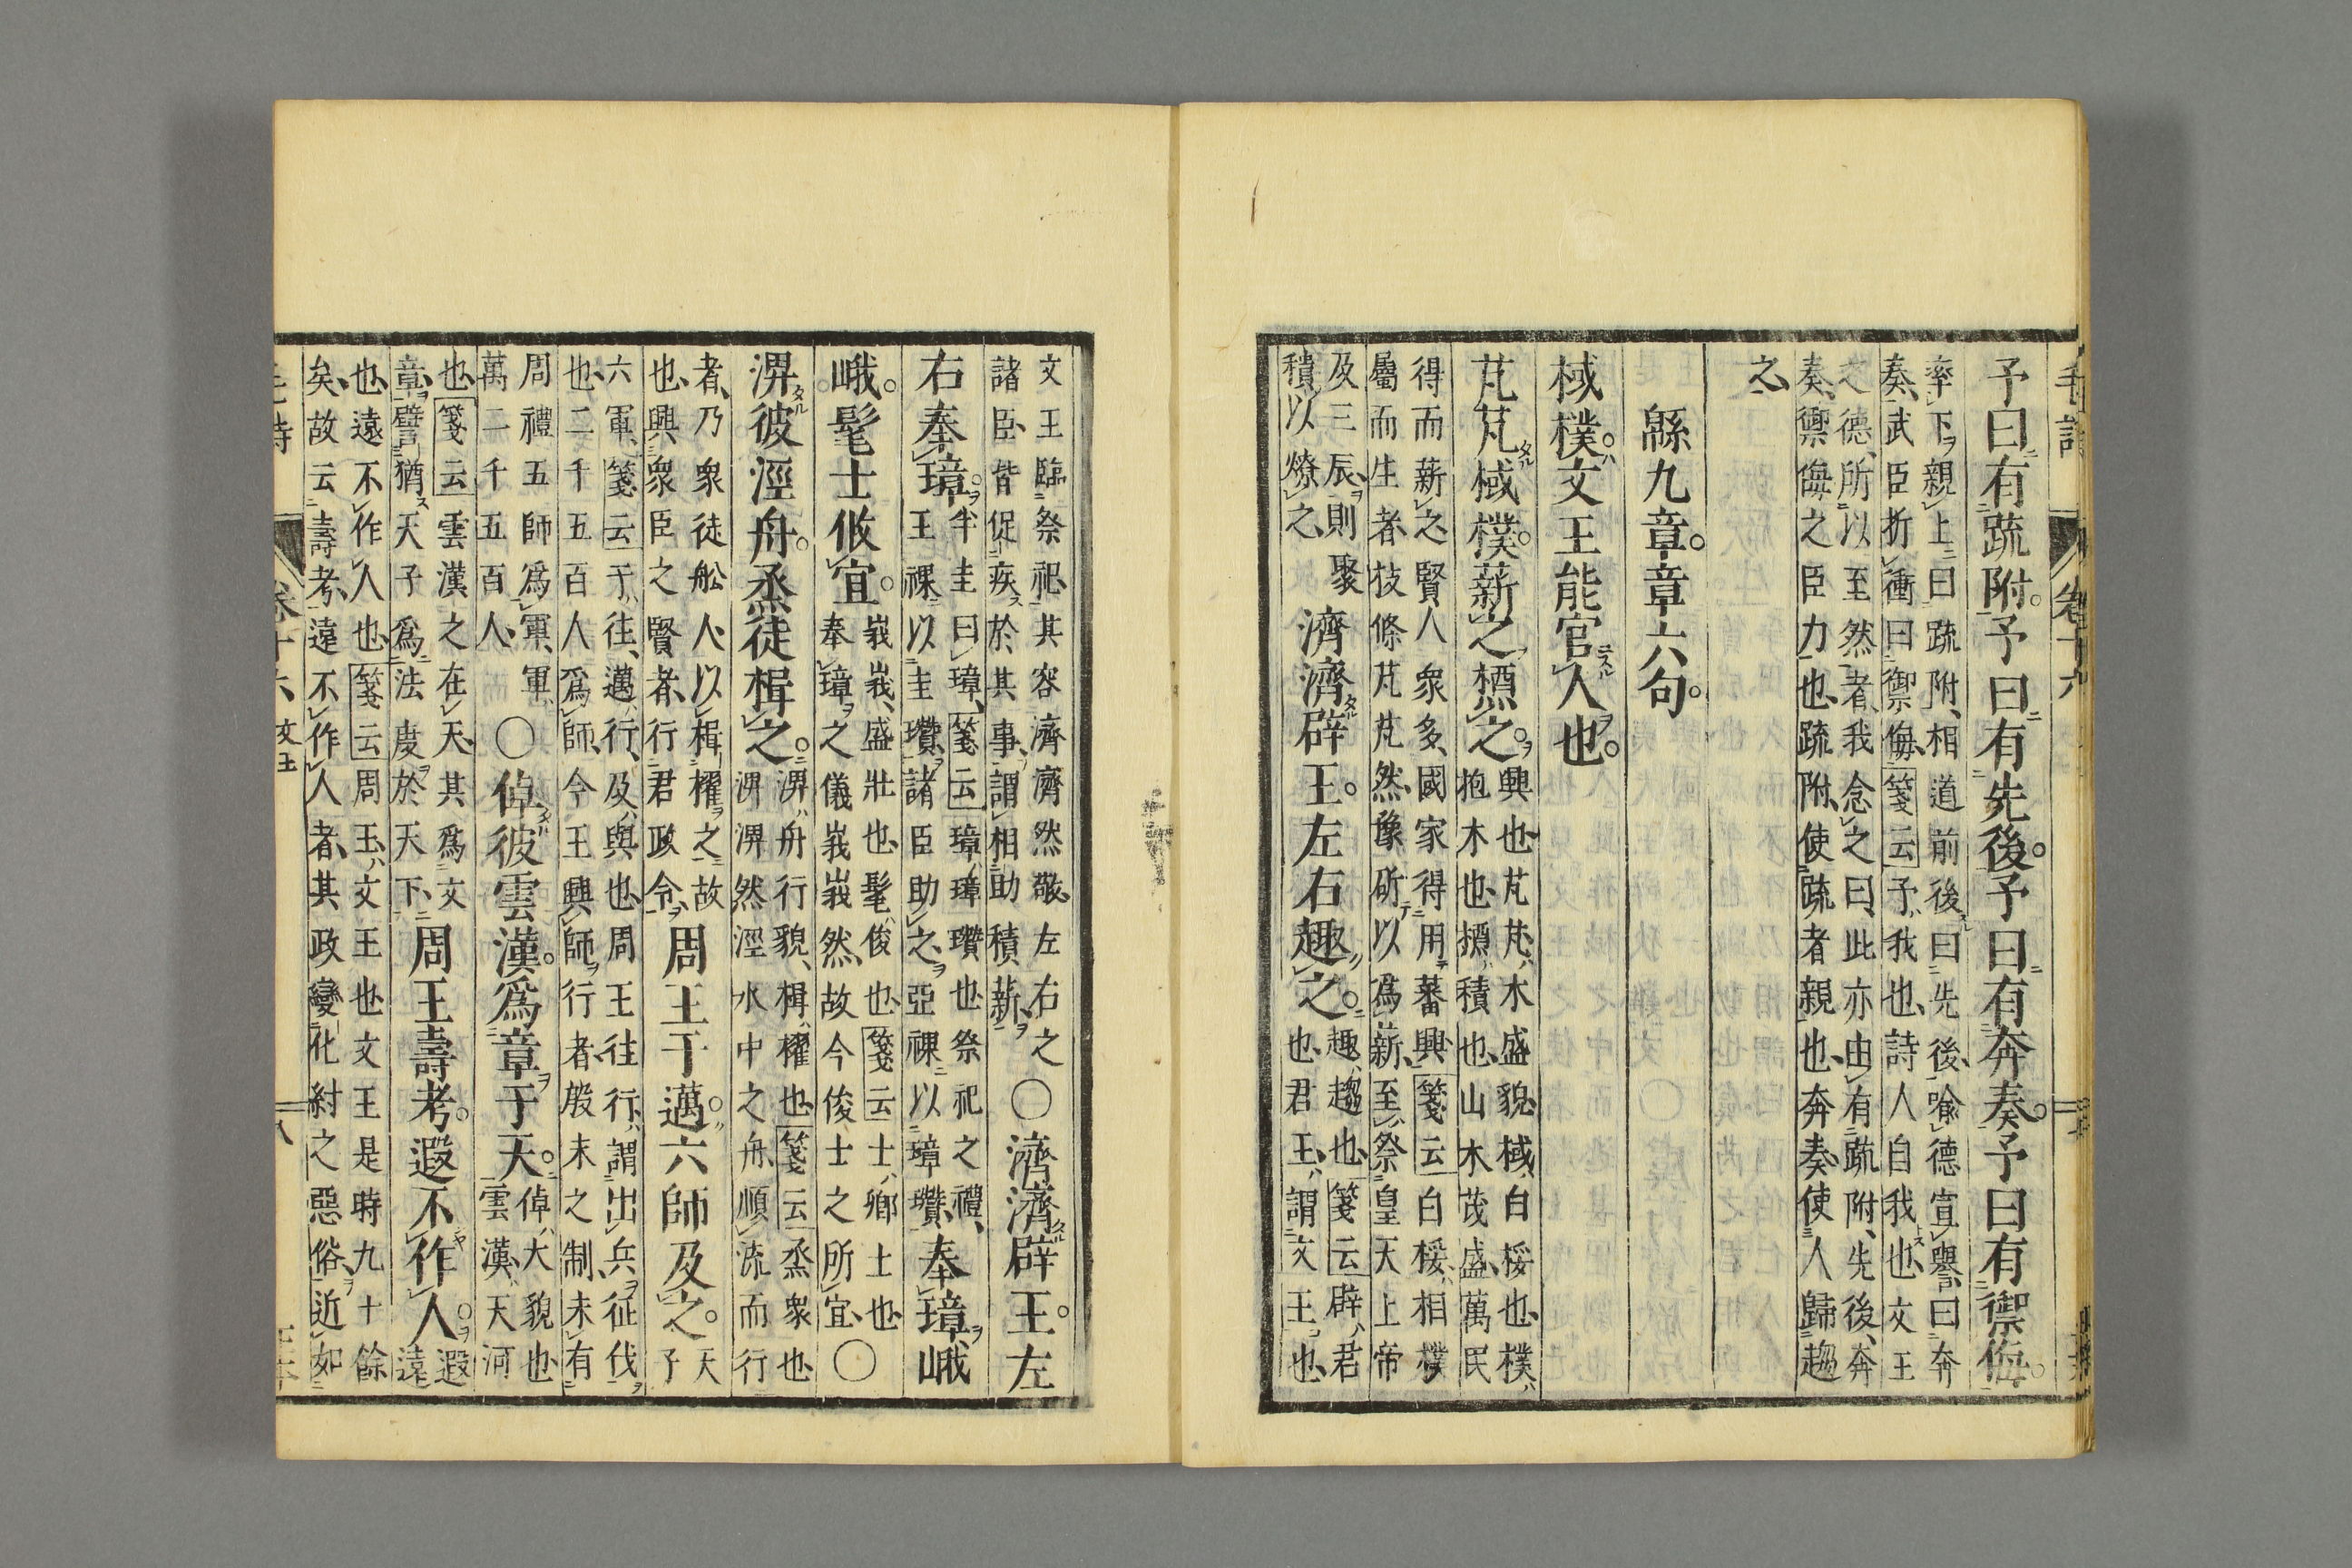 予曰有疏附予曰有先後予曰有奔奏予曰有禦侮
率下親上曰疏附相道前後曰先後喩德宣譽曰奔
奏武臣折衝曰禦侮箋云予我也詩人自我也文王
之德所以至然者我念之曰此亦由有疏附先後奔
奏禦侮之臣力也疏附使疏者親也奔奏使人歸趨
之
緜九章章六句
棫樸文王能官人也
芃芃棫樸薪之槱之
興也芃芃木盛貌棫白桵也樸
抱木也槱積也山木茂盛萬民
得而薪之賢人衆多國家得用蕃興箋云白桵相樸
屬而生者枝條芃芃然豫斫以爲薪至祭皇天上帝
及三辰則聚
積以燎之
濟濟辟王左右趣之
趣趨也箋云辟君
也君王謂文王也
文王臨祭祀其容濟濟然敬左右之
諸臣皆促疾於其事謂相助積薪
〇濟濟辟王左
右奉璋
半圭曰璋箋云璋璋瓚也祭祀之禮
王祼以圭瓚諸臣助之亞祼以璋瓚
奉璋峨
峨髦士攸宜
峩峩盛壯也髦俊也箋云士鄉士也
奉璋之儀峩峩然故今俊士之所宜
〇
淠彼涇舟烝徒楫之
淠舟行貌楫櫂也箋云烝衆也
淠淠然涇水中之舟順流而行
者乃衆徒舩人以楫櫂之故
也興衆臣之賢者行君政令
周王于邁六師及之
天子
六軍箋云于往邁行及與也周王往行謂出兵征伐
也二千五百人爲師今王興師行者殷末之制未有
周禮五師爲軍軍
萬二千五百人
〇倬彼雲漢爲章于天
倬大貌也
雲漢天河
也箋云雲漢之在天其爲文
章譬猶天子爲法度於天下
周王壽考遐不作人
遐遠
也遠不作人也箋云周王文王也文王是時九十餘
矣故云壽考遠不作人者其政變化紂之惡俗近如